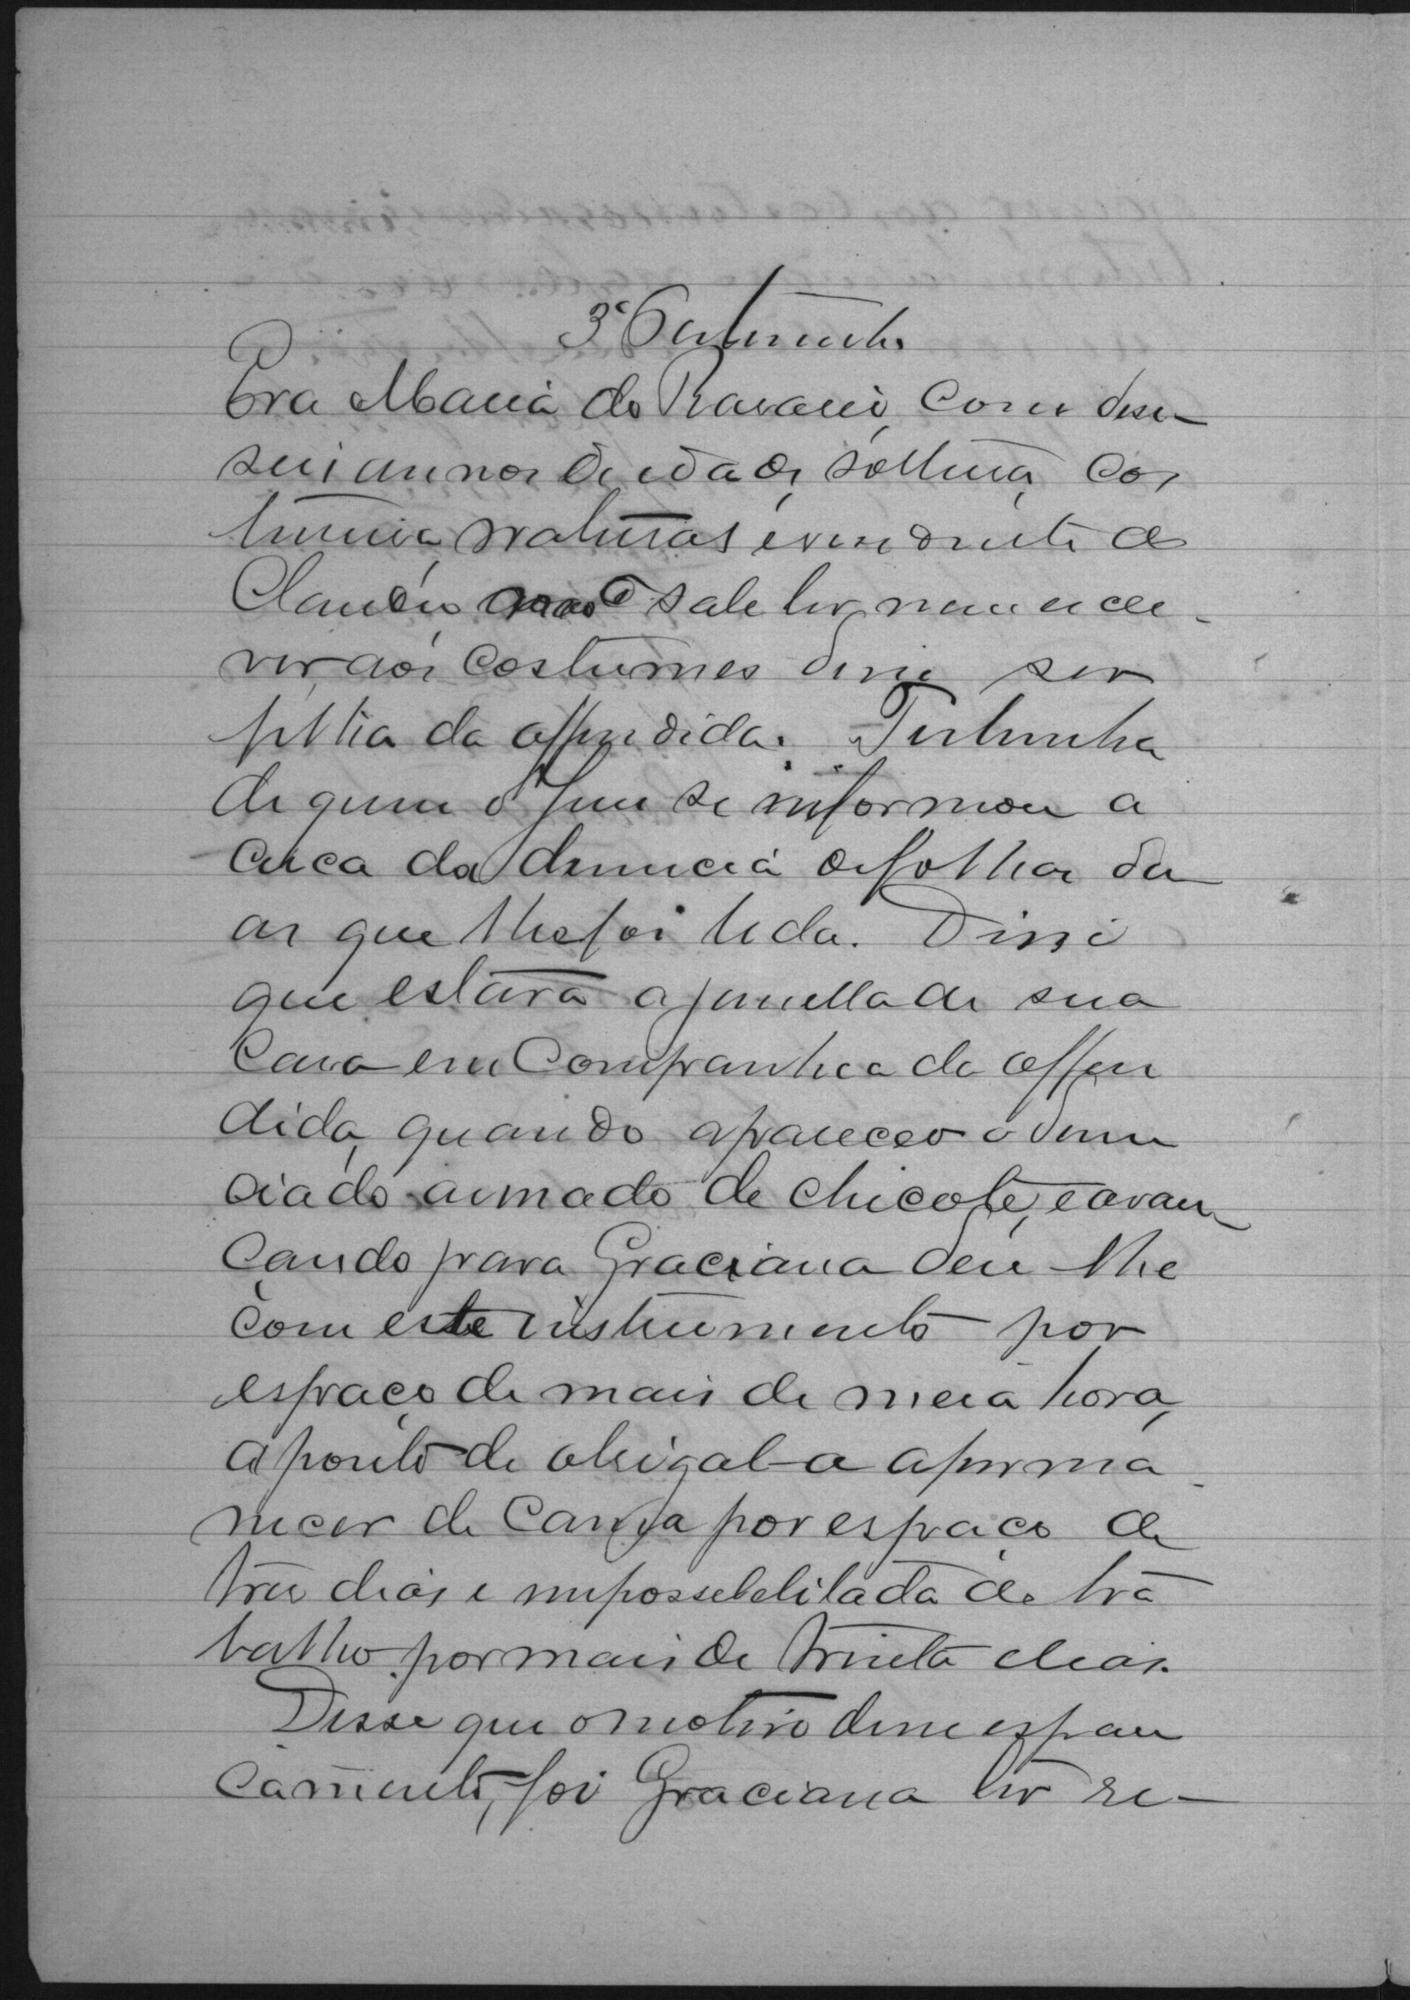 3ª Testemunha
Eva Maria do Rosario, com deze-
seis annos de idade, solteira, cos
tureira, natural e residente de
Claudio sabe ler nem escre-
ver, aos costumes disse ser
filha da offendida. Testemunha
de quem o Juiz se informou a
cerca da denuncia de folhas du
as que lhe foi lida. Disse
que estava a janella de sua
casa em companhia da offen
dida, quando apareceo o denun
ciado armado de chicote, e avan
çando para Graciana deu-lhe
com este instrumento por
espaço de mais de meia hora,
a ponto de obrigal-a a perma
necer de cama por espaço de
tres dias e impossebelitada de tra
balho por mais de trinta dias.
Disse que o motivo desse espan
camento, foi Graciana ter re-